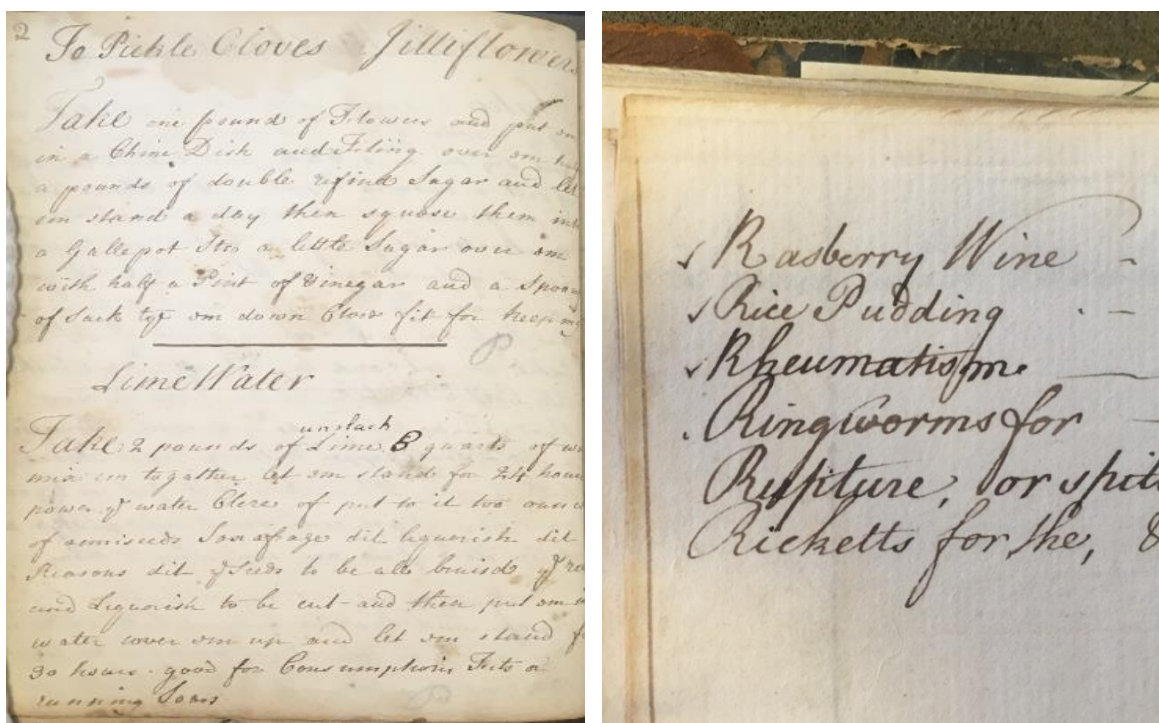 2
To Pickle Cloves Jilliflowers
Take one pound of Flowers and put om
in a Chine Dish and over om
a pounds of double refind Sugar and let
om stand a day then squose them into
a Gallepot a little Sugar over om
with half a Pint of Vinegar and a Spoon
of Sack om down Close fit for keep
Lime Water
unslack
Take 2 pounds of Lime 8 quarts of
mix em togather let om stand for 24 hours
power ye water Clere of put to it too
of anniseeds dit liquorish dit
Reasons dit ye Seeds to be all bruisd ye
and Liquorish to be cut and then put om
water cover om up and let om stand
30 hours good for Consumphoin
running Soars
Rasberry Wine -
Rice Pudding -
Rheumatism.
Ringworms for
Rupture, or
Ricketts for the, &